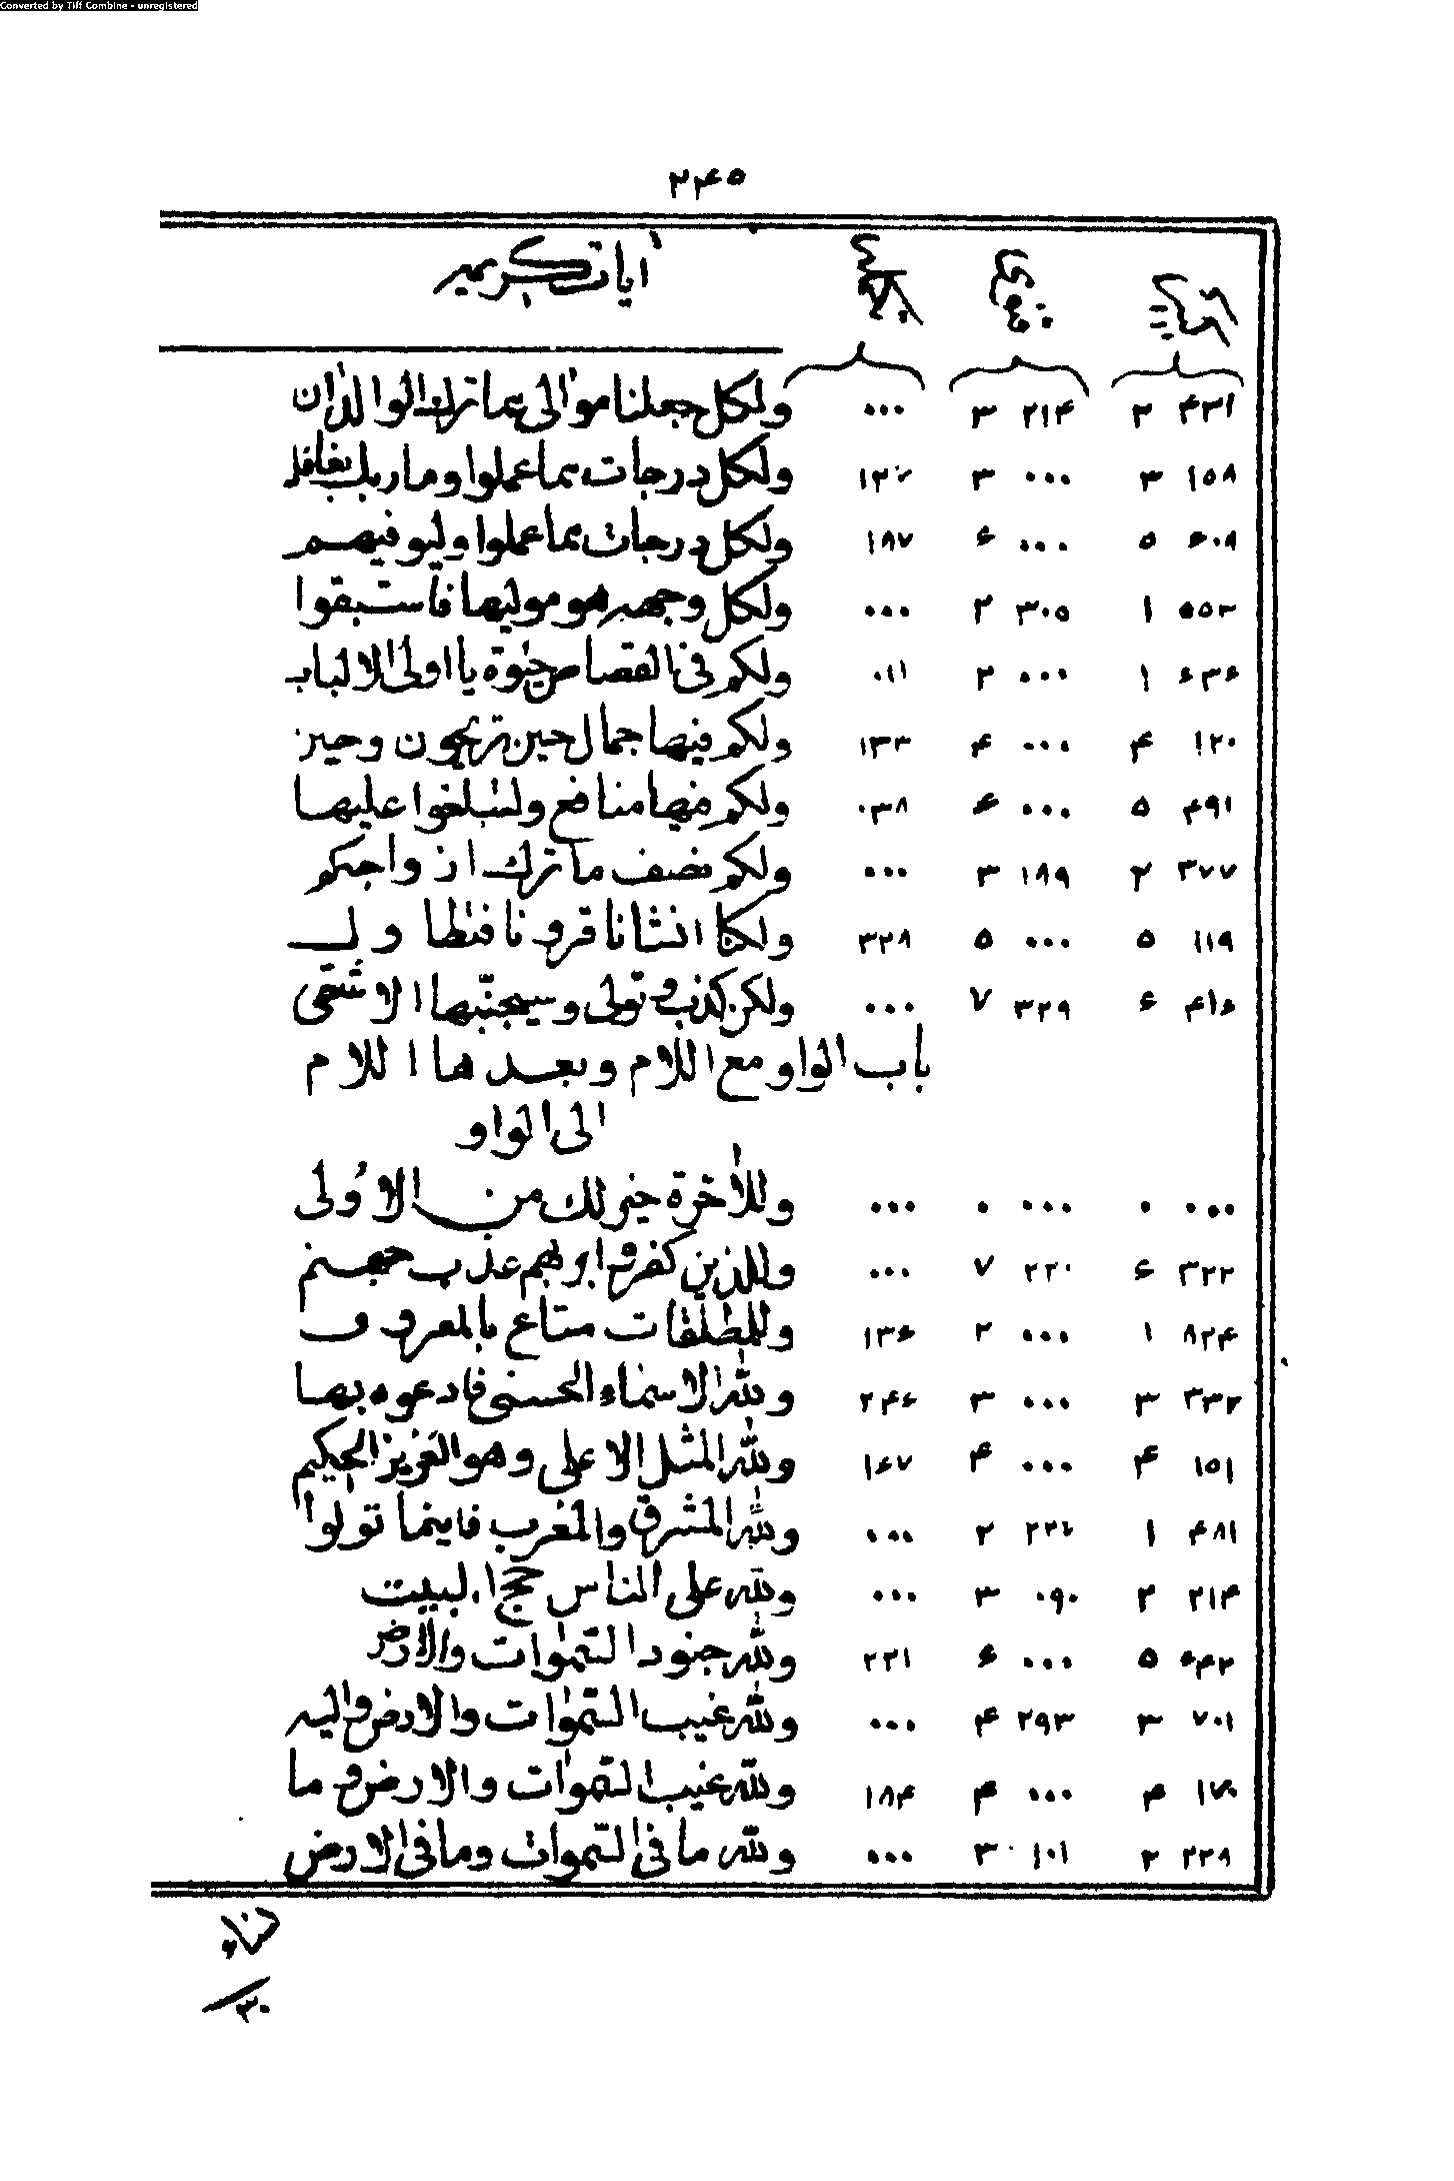 Converted by Tiff Combine - unregistered
۲۴۵
آيات كريمه
۴۳۱ ۲ ۲۱۴ ۳ ۰۰۰ ولكل جعلنا موالى مما ترك الوالدان
۱۵۸ ۳ ۰۰۰ ۳ ۱۲۷ ولكل درجات مما عملوا وما ربك بغافل
۶۰۸ ۵ ۰۰۰ ۶ ۱۸۷ ولكل درجات مما عملوا وليوفيهم
۵۵۳ ۱ ۳۰۵ ۲ ۰۰۰ ولكل وجهه هو موليها فاستبقوا
۶۳۶ ۱ ۰۰۰ ۲ ۰۱۱ ولكم فى القصاص حيوة يا اولى الالباب
۱۲۰ ۴ ۰۰۰ ۴ ۱۳۳ ولكم فيها جمال حين تريحون وحين
۴۹۱ ۵ ۰۰۰ ۶ ۰۳۸ ولكم فيها منافع ولتبلغوا عليها
۳۷۷ ۲ ۱۸۹ ۳ ۰۰۰ ولكم نصف ما ترك ازواجكم
۱۱۹ ۵ ۰۰۰ ۵ ۳۲۸ ولكنا انشانا قرونا فتطاول
۴۱۶ ۶ ۳۲۹ ۷ ۰۰۰ ولكن كذب و تولى وسيجنبها الاشقى
باب الواو مع اللام وبعدها اللام
الى الواو
۰۰۰ ۰ ۰۰۰ ۰ ۰۰۰ وللاخرة خير لك من الاولى
۳۲۲ ۶ ۲۲۰ ۷ ۰۰۰ وللذين كفروا بربهم عذب جهنم
۸۲۴ ۱ ۰۰۰ ۲ ۱۳۶ وللمطلقات متاع بالمعروف
۳۳۲ ۳ ۰۰۰ ۳ ۲۴۶ ولله الاسماء الحسنى فادعوه بها
۱۵۱ ۴ ۰۰۰ ۴ ۱۶۷ ولله المثل الاعلى وهو العزيز الحكيم
۴۸۱ ۱ ۲۲۶ ۲ ۰۰۰ ولله المشرق والمغرب فاينما تولوا
۲۱۴ ۲ ۰۹۰ ۳ ۰۰۰ ولله على الناس حج البيت
۶۴۲ ۵ ۰۰۰ ۶ ۲۲۱ ولله جنود السموات والارض
۷۰۱ ۳ ۲۹۳ ۴ ۰۰۰ ولله غيب السموات والارض واليه
۱۷۰ ۴ ۰۰۰ ۴ ۱۸۴ ولله غيب السموات والارض وما
۲۲۸ ۲ ۱۰۱ ۳ ۰۰۰ ولله ما فى السموات وما فى الارض
۳۰